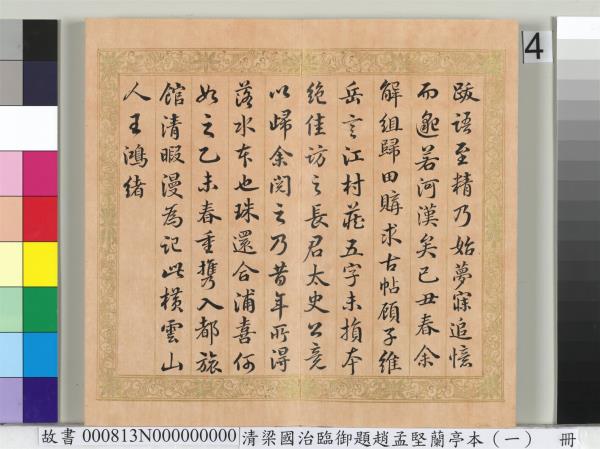 跋語至精乃始夢寐追憶
而邈若河漢矣己丑春余
解組歸田購求古帖顧子維
岳言江村莊五字未損本
絶佳訪之長君太史公竟
以歸余閱之乃昔年所得
落水本也珠還合浦喜何
如之乙未春重攜入都旅
館清暇漫為記此橫雲山
人王鴻緒
4
故書 000813N000000000 清梁國治臨御題趙孟堅蘭亭本（一） 冊